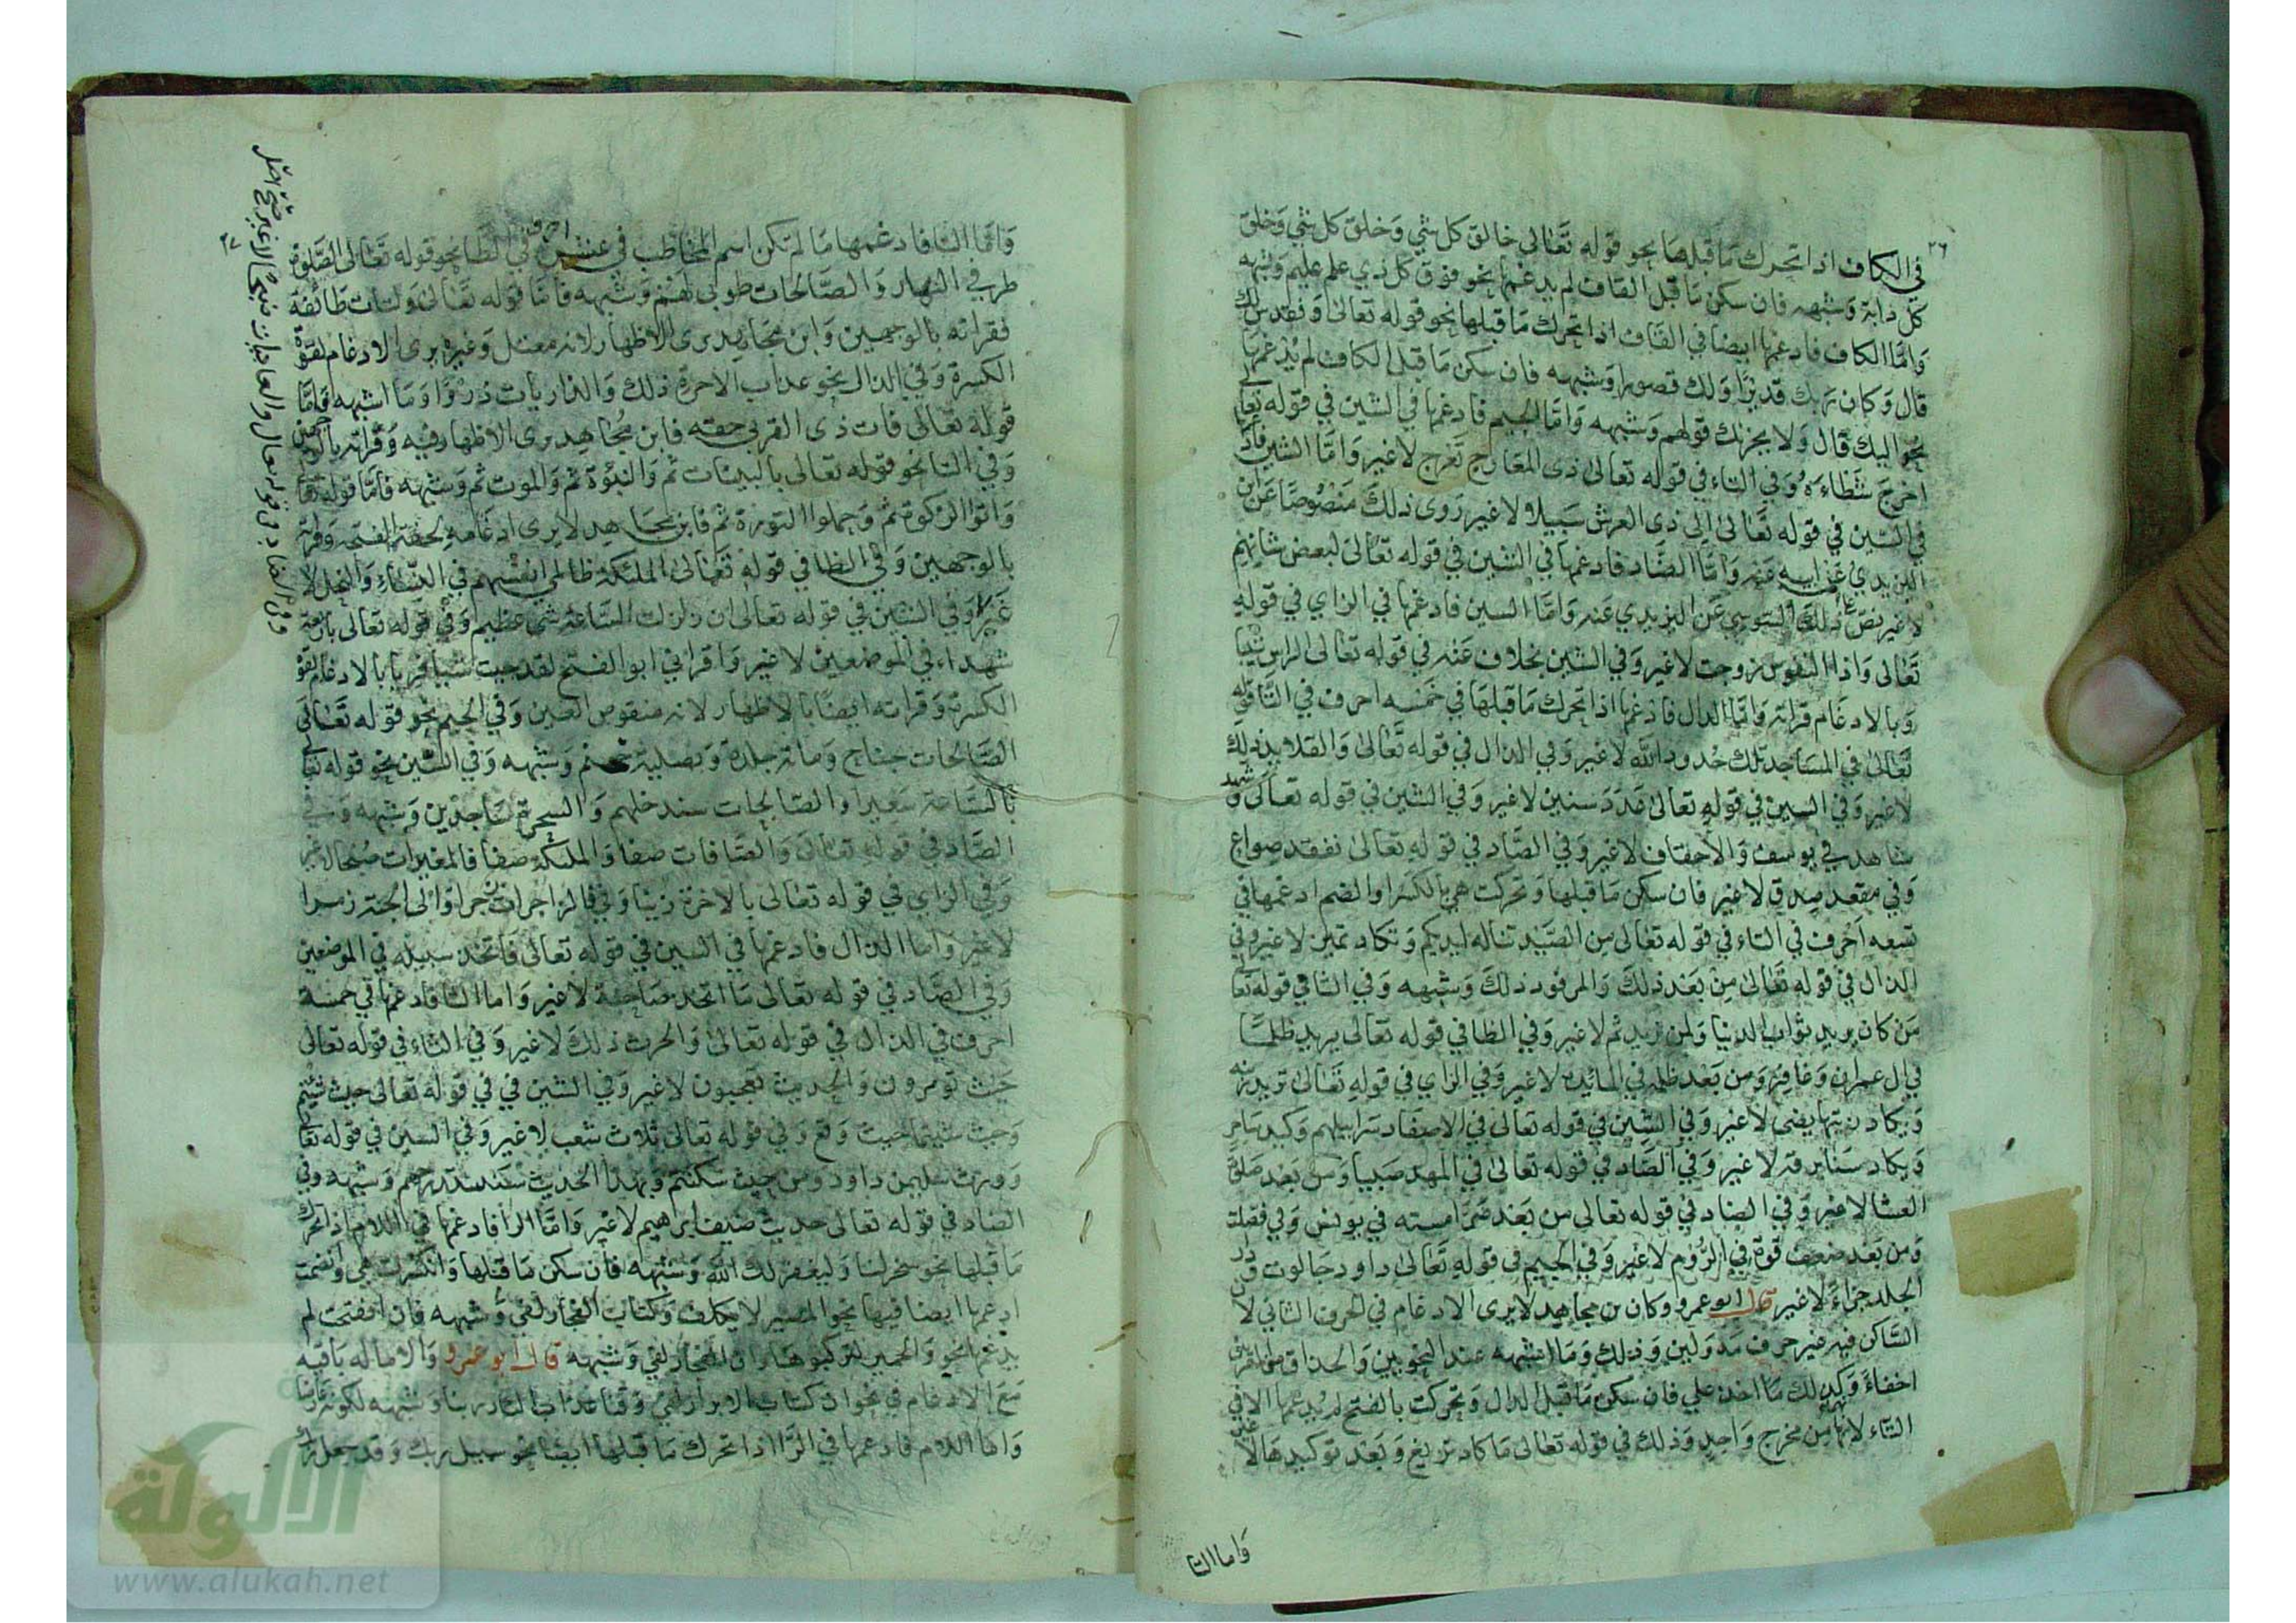 ٢٦
في الكاف اذا تحرك ما قبلها نحو قوله تعالى خالق كل شي وخلق كل شي وخلق
كل دابة وشبهه فان سكن ما قبل القاف لم يدغمها نحو فوق كل ذي علم عليم وشبهه
واما الكاف فادغمها ايضا في القاف اذا تحرك ما قبلها نحو قوله تعالى ونقدس لك
قال وكان ربك قديرا ولك قصورا وشبهه فان سكن ما قبل الكاف لم يدغمها
نحو اليك قال ولا يحزنك قولهم وشبهه واما الجيم فادغمها في الشين في قوله تعالى
اخرج شطاءه وفي التاء في قوله تعالى ذى المعارج تعرج لا غير واما الشين فادغمها
في السين في قوله تعالى الى ذى العرش سبيلا لا غير روى ذلك منصوصا عن ابن
اليزيدي عن ابيه عنه واما الضاد فادغمها في الشين في قوله تعالى لبعض شانهم
لا غير نص على ذلك السوسي عن اليزيدي عنه واما السين فادغمها في الزاي في قوله
تعالى واذا النفوس زوجت لا غير وفي الشين بخلاف عنه في قوله تعالى الراس شيبا
وبالادغام قراته واما الدال فادغمها اذا تحرك ما قبلها في خمسه احرف في التا قوله
تعالى في المساجد تلك حدود الله لا غير وفي الذال في قوله تعالى والقلايد ذلك
لا غير وفي السين في قوله تعالى عدد سنين لا غير وفي الشين في قوله تعالى وشهد
شاهد في يوسف والاحقاف لا غير وفي الصاد في قوله تعالى نفقد صواع
وفي مقعد صدق لا غير فان سكن ما قبلها وتحركت هي بالكسر او الضم ادغمها في
تسعه احرف في التاء في قوله تعالى من الصيد تناله ايديكم وتكاد تميز لا غير وفي
الذال في قوله تعالى من بعد ذلك والمرفود ذلك وشبهه وفي الثا في قوله تعا
من كان يريد ثواب الدنيا ولمن نريد ثم لا غير وفي الظا في قوله تعالى يريد ظلما
في ال عمران وغافر ومن بعد ظلمه في المائيدة لا غير وفي الزاي في قوله تعالى تريد زينة
ويكاد زيتها يضى لا غير وفي السين في قوله تعالى في الاصفاد سرابيلهم وكيد ساحر
ويكاد سنا برقه لا غير وفي الصاد في قوله تعالى في المهد صبيا ومن بعد صلوة
العشا لا غير وفي الضاد في قوله تعالى من بعد ضراء مسته في يونس وفي فصلت
ومن بعد ضعف قوة في الروم لا غير وفي الجيم في قوله تعالى داود جالوت ودار
الخلد جزاء لا غير قال ابو عمرو وكان بن مجاهد لا يرى الادغام في الحرف الثاني لا
الساكن فيه غير حرف مد ولين وذلك وما اشبهه عند النحويين والحذاق من المقرئين
اخفاء وكذلك ما اخذ علي فان سكن ما قبل الدال وتحركت بالفتح لم يدغمها الا في
التاء لانهما من مخرج واحد وذلك في قوله تعالى ما كاد تزيغ وبعد توكيدها لا غير
واما التا
٢٧
واما التا فادغمها ما لم تكن اسم المخاطب في عشرة احرف في الطا نحو قوله تعالى الصلوة
طرفي النهار والصالحات طوبى لهم وشبهه فاما قوله تعالى ولتات طائفة
فقراته بالوجهين وابن مجاهد يرى الاظهار لانه معتل وغيره يرى الادغام لقوة
الكسرة وفي الذال نحو عذاب الاخرة ذلك والذاريات ذروا وما اشبهه فاما
قوله تعالى فات ذى القربى حقه فابن مجاهد يرى الاظهار فيه وقراته بالوجهين
وفي الثا نحو قوله تعالى بالبينات ثم والنبوة ثم والموت ثم وشبهه فاما قوله تعا
واتوا الزكوة ثم وحملوا التورة ثم فابن مجاهد لا يرى ادغامه لخفة الفتحة وقراته
بالوجهين وفي الظا في قوله تعالى الملئكة ظالمي انفسهم في النساء والنحل لا
غير وفي الشين في قوله تعالى ان زلزلت الساعة شي عظيم وفي قوله تعالى باربعة
شهداء في الموضعين لا غير واقراني ابو الفتح لقد جيت شيا فريا بالادغام لقوة
الكسرة وقراته ايضا بالاظهار لانه منقوص العين وفي الجيم نحو قوله تعالى
الصالحات جناح ومائة جلدة وتصلية جحيم وشبهه وفي السين نحو قوله تعالى
بالساعة سعيرا والصالحات سندخلهم والسحرة ساجدين وشبهه وفي
الصاد في قوله تعالى والصافات صفا والملئكة صفا فالمغيرات صبحا لا غير
وفي الزاي في قوله تعالى بالاخرة زينا وفي فالزاجرات زجرا والى الجنة زمرا
لا غير واما الذال فادغمها في السين في قوله تعالى فاتخذ سبيله في الموضعين
وفي الصاد في قوله تعالى ما اتخذ صاحبة لا غير واما الثا فادغمها في خمسة
احرف في الذال في قوله تعالى والحرث ذلك لا غير وفي التاء في قوله تعالى
حيث تومرون والحديث تعجبون لا غير وفي الشين في في قوله تعالى حيث شيتم
وحيث شيتما حيث وقع وفي قوله تعالى ثلاث شعب لا غير وفي السين في قوله تعالى
وورث سليمن داود ومن حيث سكنتم وبهذا الحديث سنستدرجهم وشبهه وفي
الضاد في قوله تعالى حديث ضيف ابراهيم لا غير واما الرا فادغمها في اللام اذا تحرك
ما قبلها نحو سخر لنا وليغفر لك الله وشبهه فان سكن ما قبلها وانكسرت هي وانضمت
ادغمها ايضا فيها نحو المصير لا يكلف وكتاب الفجار لفي وشبهه فان انفتحت لم
يدغمها نحو والحمير لتركبوها وان الفجار لفي وشبهه قال ابو عمرو والاماله باقيه
مع الادغام في نحو ان كتاب الابرار لفي وقنا عذاب النار ربنا وشبهه لكونه عارضا
واما اللام فادغمها في الرا اذا تحرك ما قبلها ايضا نحو سبيل ربك وقد جعل ربك
وفي الضاد في قوله تعالى والعاديات ضبحا لا غير صح اصل
الألوكة
www.alukah.net